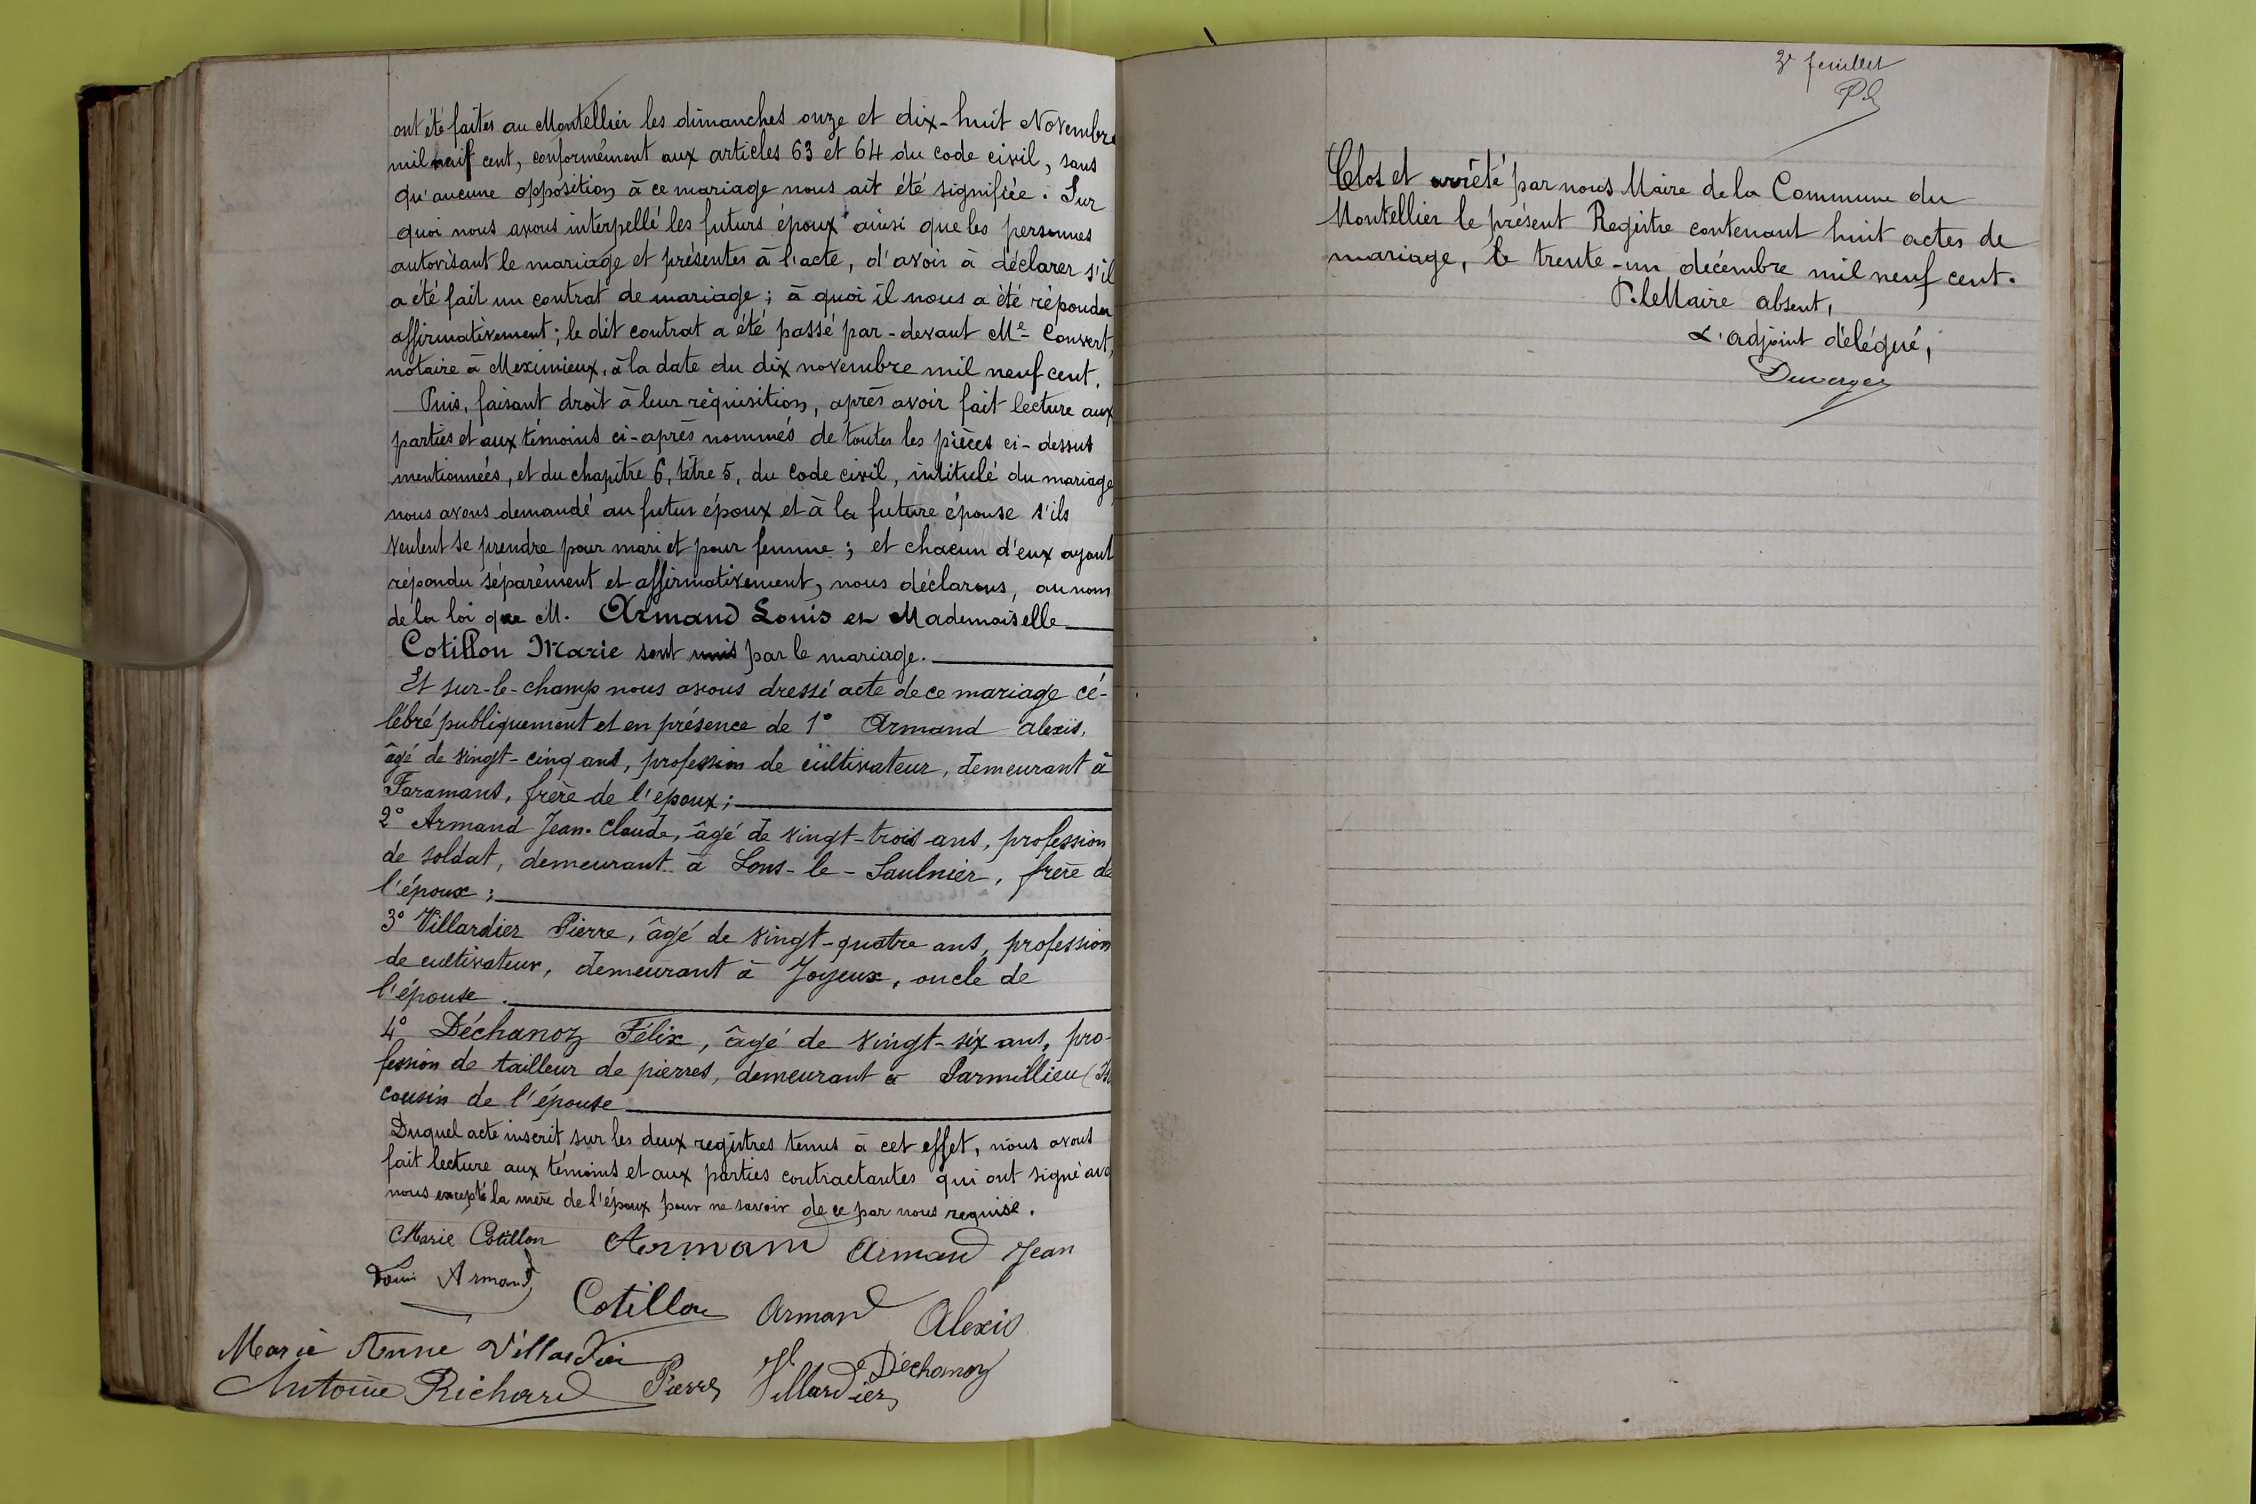 ont été faites au Montellier les dimanches onze et dix-huit Novembre
mil neuf cent, conformément aux articles 63 et 64 du code civil, sans
qu'aucune opposition à ce mariage nous ait été signifiée. Sur
quoi nous avons interpellé les futurs époux ainsi que les personnes
autorisant le mariage et présentes à l'acte, d'avoir à déclarer s'il
a été fait un contrat de mariage; à quoi il nous a été répondu
affirmativement; le dit contrat a été passé par-devant Me Convert,
notaire à Meximieux, à la date du dix novembre mil neuf cent.
Puis, faisant droit à leur réquisition, après avoir fait lecture aux
parties et aux témoins ci-après nommés de toutes les pièces ci-dessus
mentionnées, et du chapitre 6, titre 5, du code civil, intitulé du mariage
nous avons demandé au futur époux et à la future épouse s'ils
veulent se prendre pour mari et pour femme; et chacun d'eux ayant
répondu séparément et affirmativement, nous déclarons, au nom
de la loi que M. Armand Louis et Mademoiselle
Cotillon Marie sont unis par le mariage.
Et sur-le-champ nous avons dressé acte de ce mariage cé-
lébré publiquement et en présence de 1° Armand Alexis,
âgé de vingt-cinq ans, profession de cultivateur, demeurant à
Faramans, frère de l'époux;
2° Armand Jean-Claude, âgé de vingt-trois ans, profession
de soldat, demeurant à Lons-le-Saulnier, frère de
l'époux;
3° Villardier Pierre, âgé de vingt-quatre ans, profession
de cultivateur, demeurant à Joyeux, oncle de
l'épouse.
4° Déchanoz Félix, âgé de vingt-six ans, pro-
fession de tailleur de pierres, demeurant à Parmillieu (Is
cousin de l'épouse
Duquel acte inscrit sur les deux registres tenus à cet effet, nous avons
fait lecture aux témoins et aux parties contractantes qui ont signé avec
nous excepté la mère de l'époux pour ne savoir de ce par nous requise.
Marie Cotillon Armand Armand Jean
Louis Armand
Cotillon Armand Alexis
Marie Anne Villardier Déchanoz
Antoine Richard Pierre Villardier
3e feuillet
Clos et arrêté par nous Maire de la Commune du
Montellier le présent Registre contenant huit actes de
mariage, le trente-un décembre mil neuf cent.
P. le Maire absent,
L'adjoint délégué,
Duverger